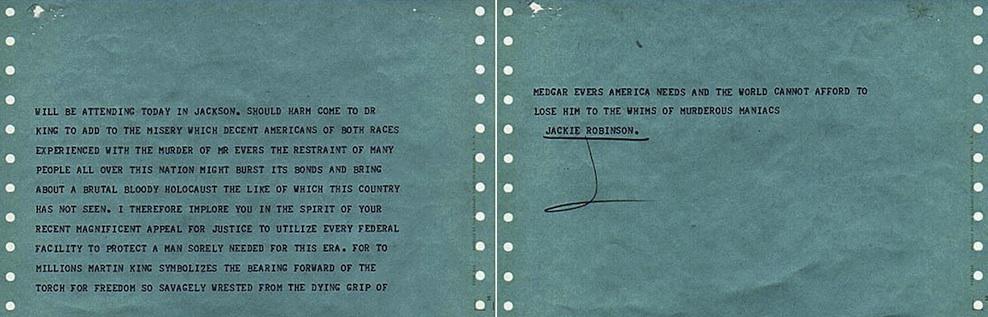 WILL BE ATTENDING TODAY IN JACKSON. SHOULD HARM COME TO DR
KING TO ADD TO THE MISERY WHICH DECENT AMERICANS OF BOTH RACES
EXPERIENCED WITH THE MURDER OF MR EVERS THE RESTRAINT OF MANY
PEOPLE ALL OVER THIS NATION MIGHT BURST ITS BONDS AND BRING
ABOUT A BRUTAL BLOODY HOLOCAUST THE LIKE OF WHICH THIS COUNTRY
HAS NOT SEEN. I THEREFORE IMPLORE YOU IN THE SPIRIT OF YOUR
RECENT MAGNIFICENT APPEAL FOR JUSTICE TO UTILIZE EVERY FEDERAL
FACILITY TO PROTECT A MAN SORELY NEEDED FOR THIS ERA. FOR TO
MILLIONS MARTIN KING SYMBOLIZES THE BEARING FORWARD OF THE
TORCH FOR FREEDOM SO SAVAGELY WRESTED FROM THE DYING GRIP OF
MEDGAR EVERS AMERICA NEEDS AND THE WORLD CANNOT AFFORD TO
LOSE HIM TO THE WHIMS OF MURDEROUS MANIACS
JACKIE ROBINSON.